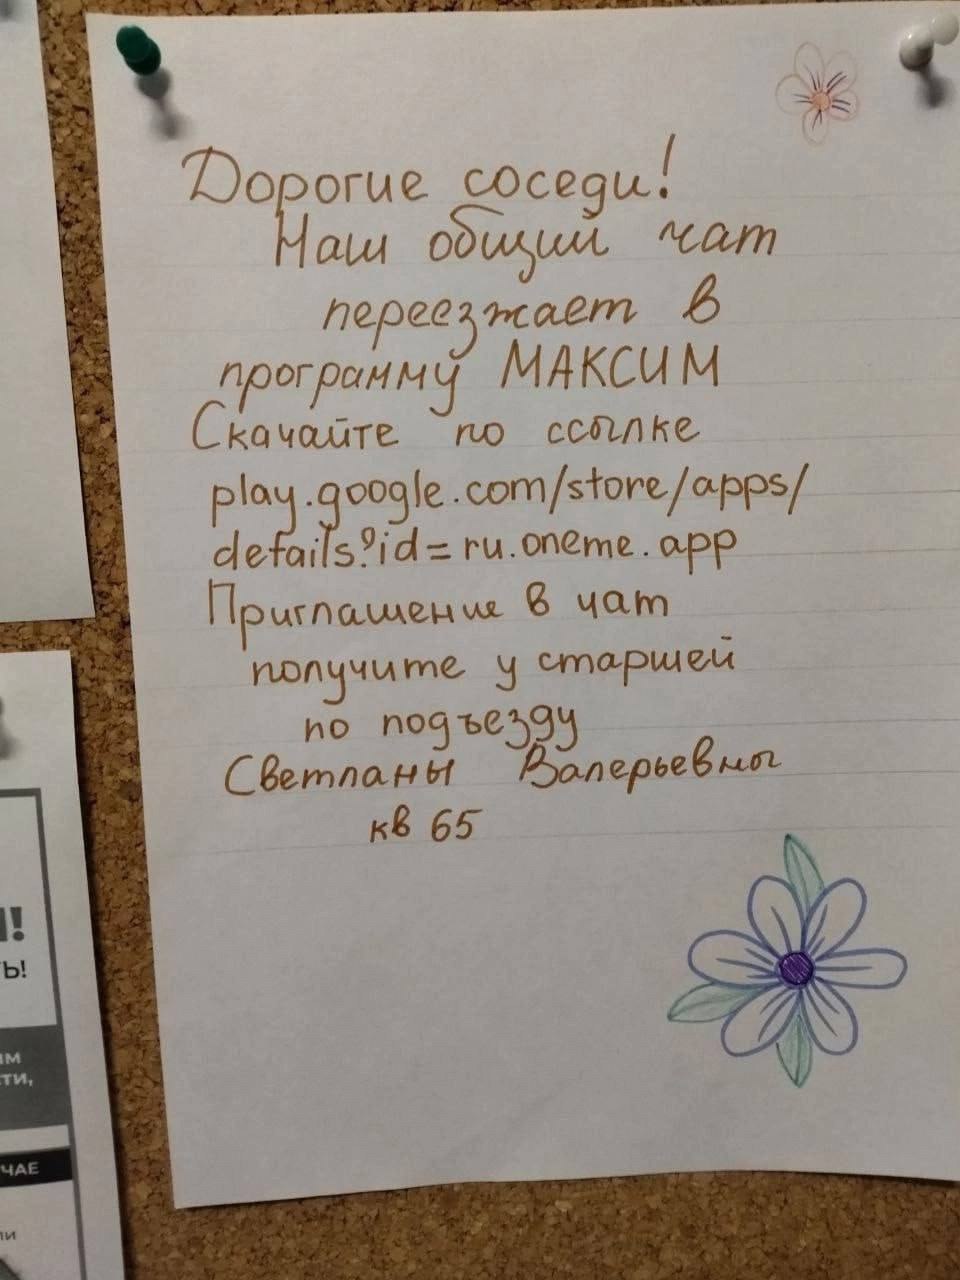 Дорогие соседи!
Наш общий чат
переезжает в
программу МАКСИМ
Скачайте по ссылке
play.google.com/store/apps/
details?id=ru.oneme.app
Приглашение в чат
получите у старшей
по подъезду
Светланы Валерьевны
кв 65
!
Ь!
ЯМ
ТИ,
ЧАЕ
ЛИ